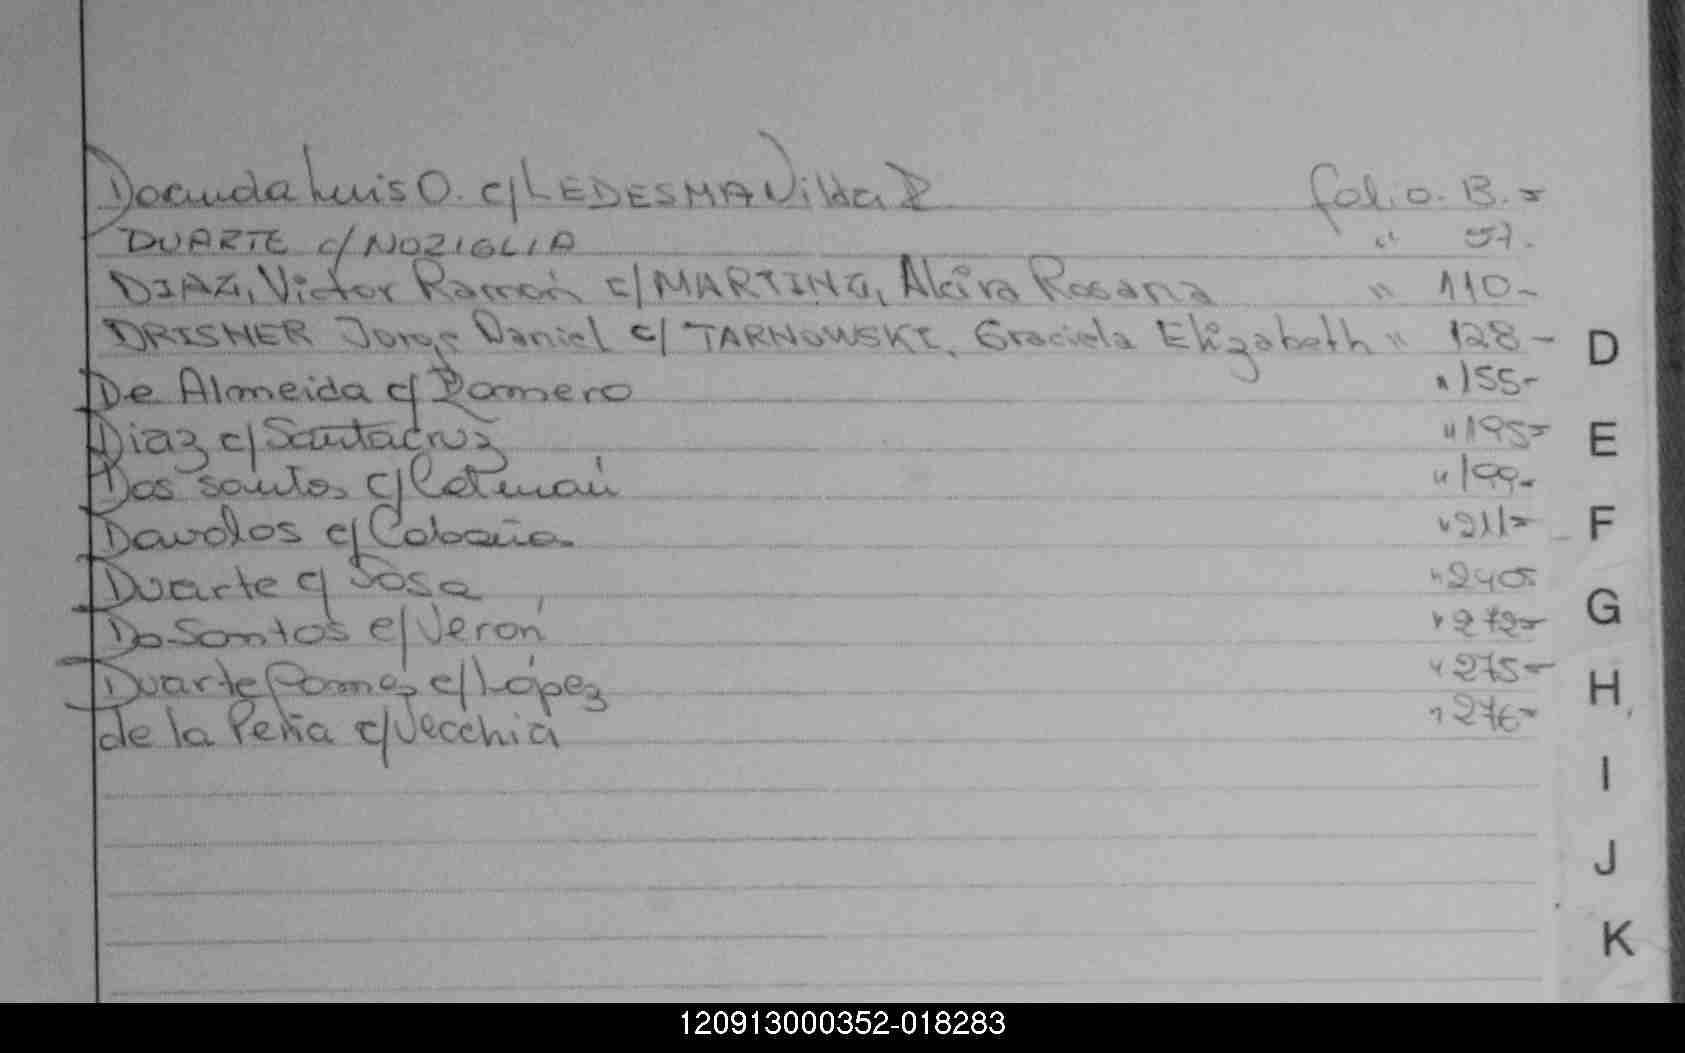 Luis O. c/ LEDESMA Nilda folio. 13.=
DUARTE c/ NOZIGLIA " 57.
DIAZ, Victor Ramón c/ MARTINEZ, Alcira Rosana " 110-
DRISNER Jorge Daniel c/ TARNOWSKI, Graciela Elizabeth " 128-
De Almeida c/ Romero " 155-
Diaz c/ Santacruz " 195=
Dos santos c/ " 199-
Davalos c/ Cabaña " 211=
Duarte c/ Sosa " 240
Do Santos c/ Verón " 272=
Duarte c/ López " 275=
de la Peña c/ Vecchia " 276=
D
E
F
G
H
I
J
K
120913000352-018283